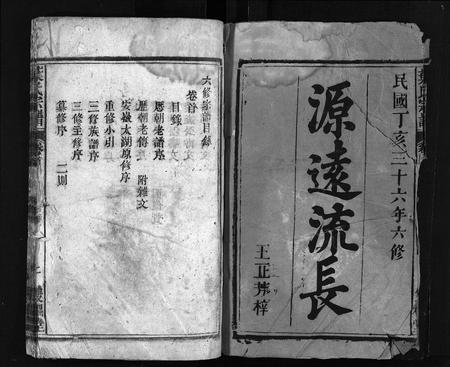 民國丁亥三十六年六修
源遠流長
王正梓
六修宗譜目錄
卷首
目錄
歷朝老譜序
歷朝老傳 附雜文
安嶽太湖原修序
重修小引
三修族譜序
三修主修序
纂修序 二則